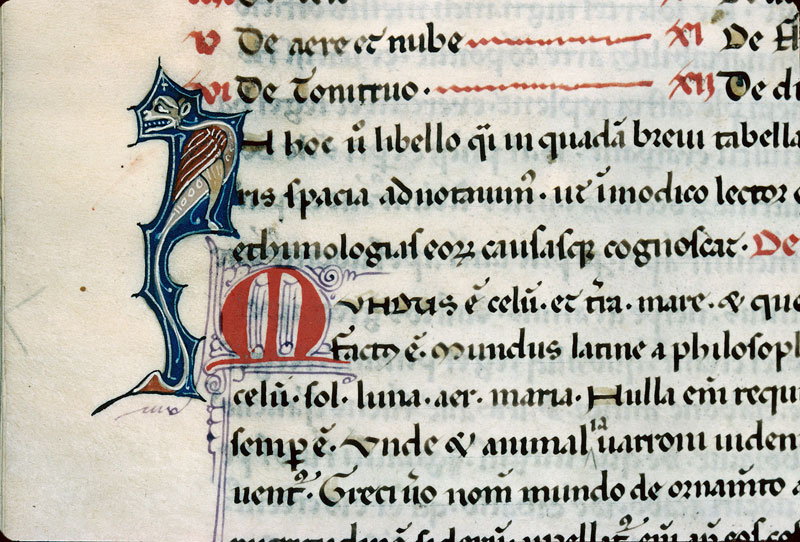 V De aere et nube XI De
VI De Tonitruo · XII De di
In hoc ů libello q̄i in quadā breui tabella
ris spacia adnotauim᷒ · ut ī modico lector
ethimologias eoꝝ causasqꝫ cognoscat · De
MVNDUS ē celū · et t̄ra · mare · & que
fact᷒ ē · Mundus latine a philosoph
celū · sol · luna · aer · maria · Nulla em̄ requi
semꝑ ē · Vnde & animalia uarroni uiden
uent᷒ · Greci ůo nom̄ mundo de ornam̄to a